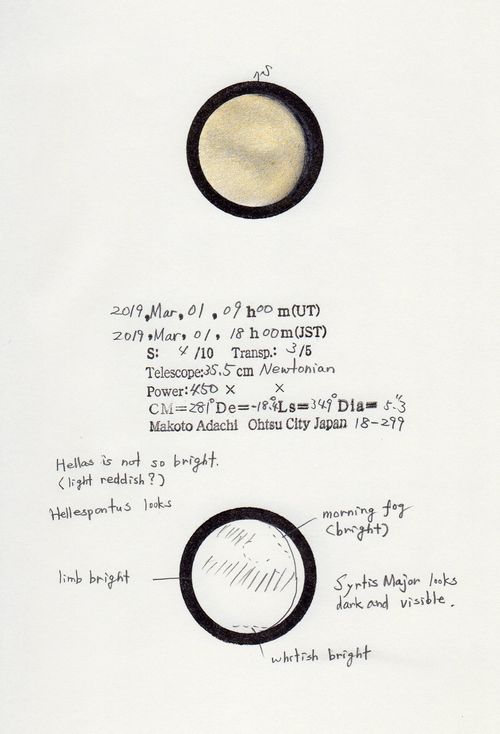 2019, Mar, 01, 09 h 00 m (UT)
2019, Mar, 01, 18 h 00 m (JST)
S: 4 /10 Transp.: 3 /5
Telescope: 35.5 cm Newtonian
Power: 450 × ×
CM=281° De=-18.4° Ls=349° Dia= 5."3
Makoto Adachi Ohtsu City Japan 18-299
Hellas is not so bright.
(light reddish?)
Hellespontus looks
morning fog
(bright)
limb bright
Syrtis Major looks
dark and visible.
whitish bright